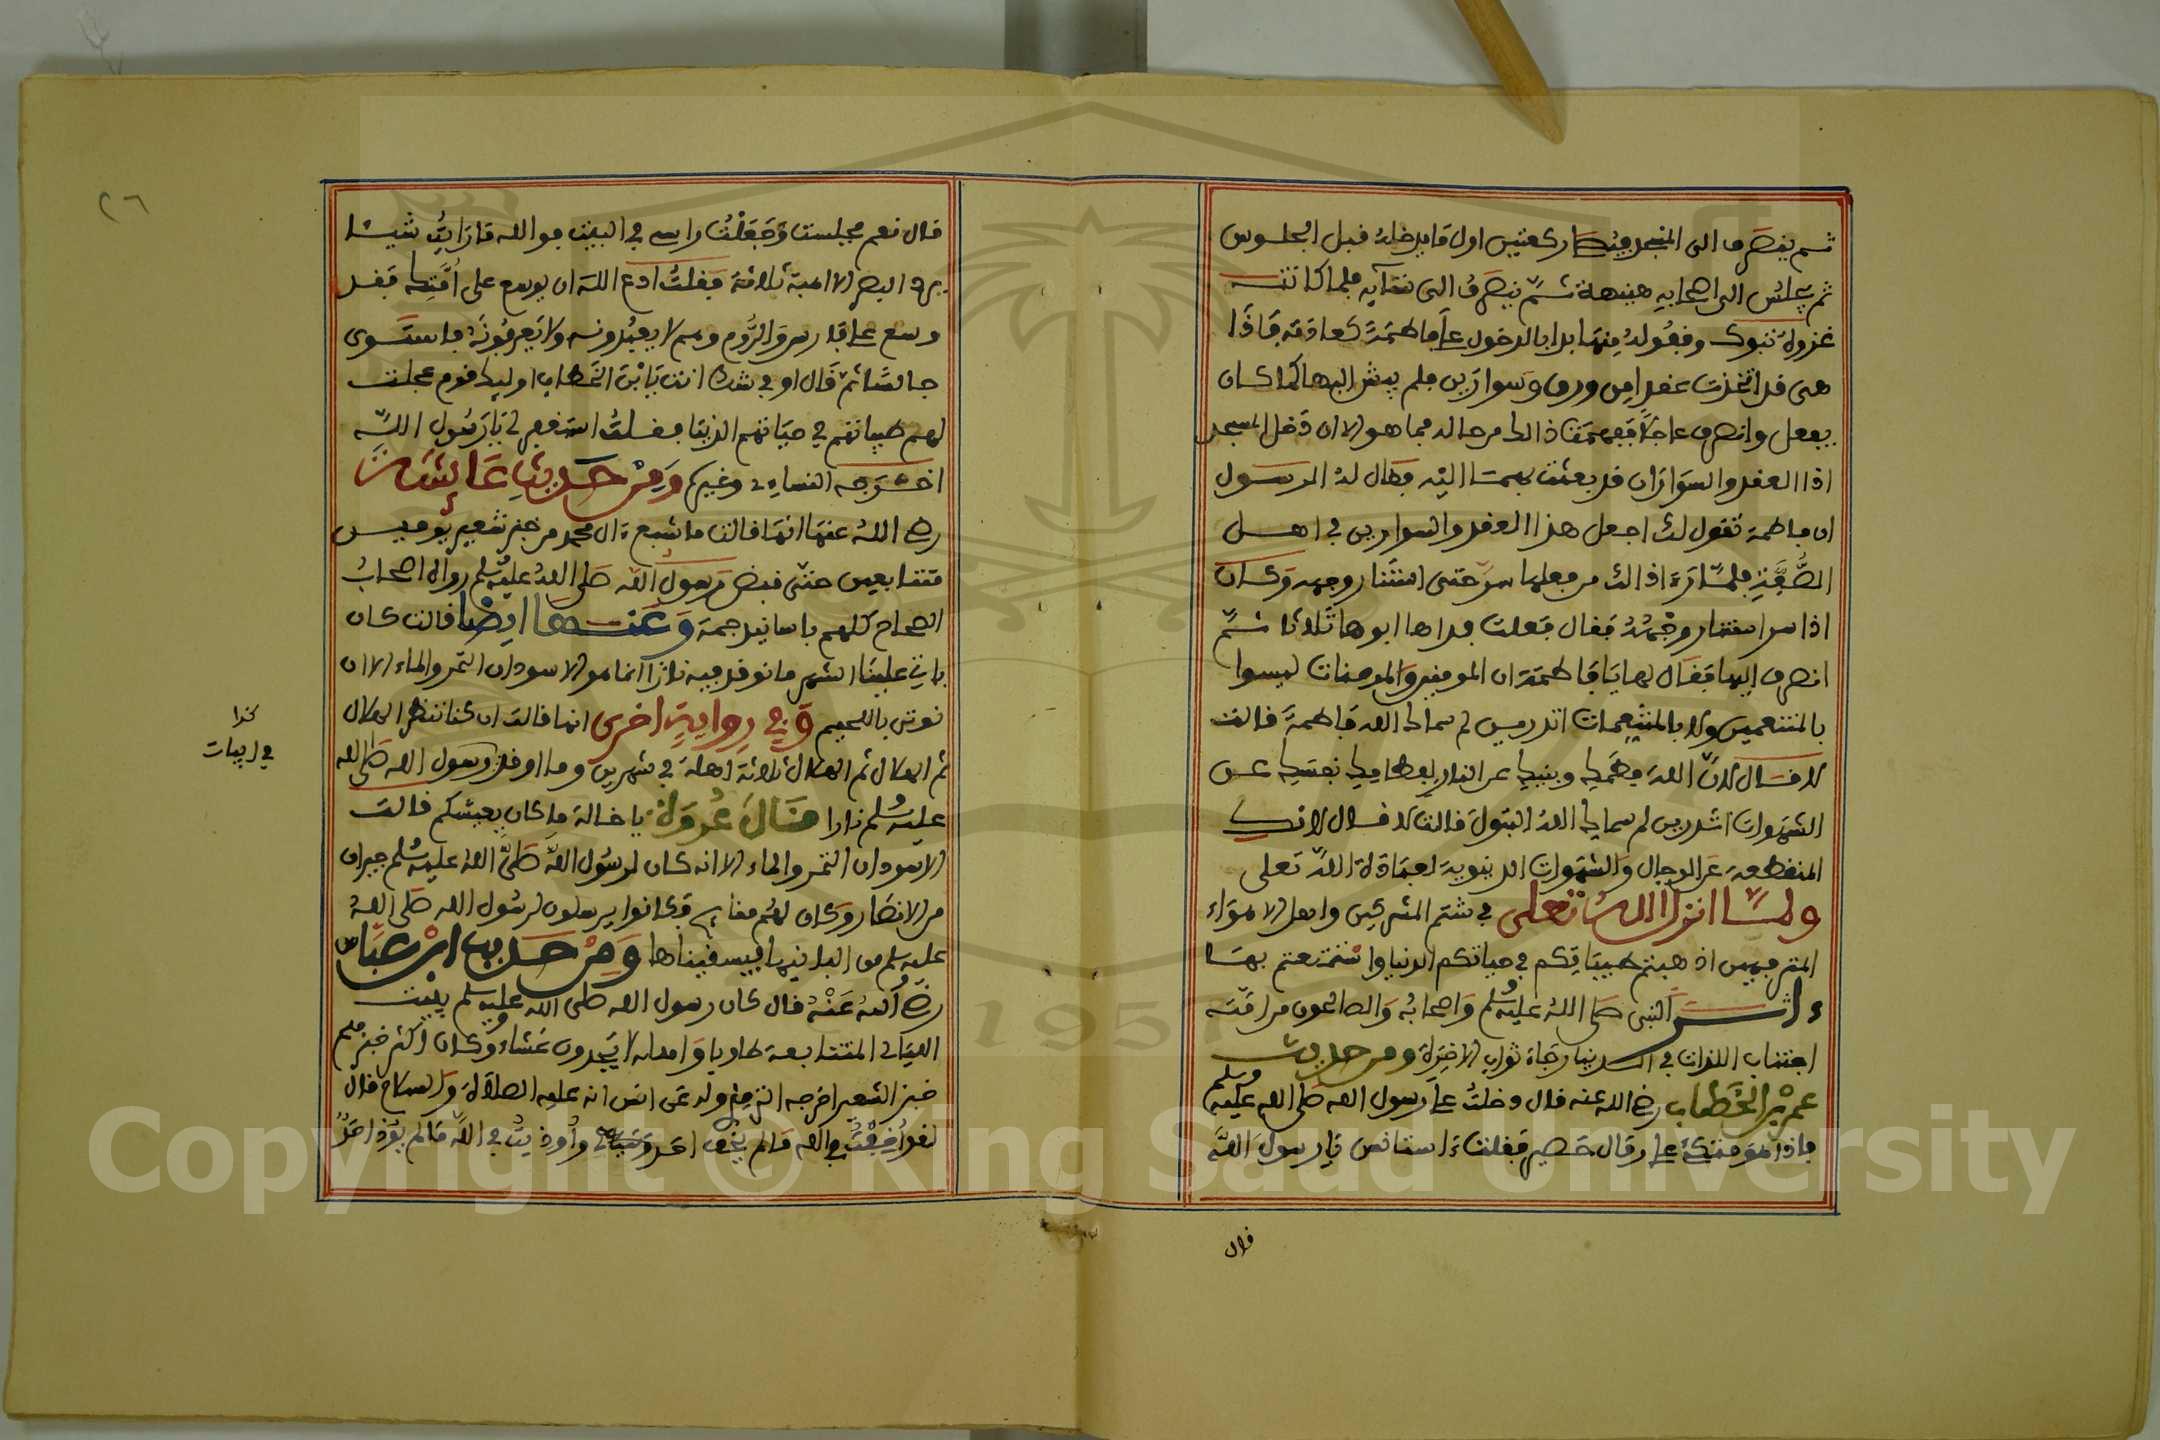 ثم ينصرف الى المسجد فيركع ركعتين اول ما يدخله قبل الجلوس
ثم يجلس الى اصحابه هنيهة ثم ينصرف الى نسآيه فلما كانت
غزوة تبوك وقفوله منها بدا بالدخول على فاطمة كعادته فاذا
هي قد اتخذت عقدا من ورق وسوارين فلم يبش اليها كما كان
يفعل وانصرف عاجلا ففهمت ذالك من حاله فما هو الا ان دخل المسجد
اذا العقد والسواران قد بعثت بهما اليه فقال له الرسول
ان فاطمة تقول لك اجعل هذا العقد والسوارين في اهل
الصفة فلما رءا ذالك من فعلها سر حتى استنار وجهه وكان
اذا سر استنار وجهه فقال فعلت فداها ابوها ثلاثا ثم
انصرف اليها فقال لها يا فاطمة ان المومنين والمومنات ليسوا
بالمتنعمين ولا بالمتنعمات اتدرين لم سماك الله فاطمة قالت
لا قال لان الله فطمك وبنيك عن النار بفطامك نفسك عن
الشهوات اتدرين لم سماك الله البتول قالت لا قال لانك
المنقطعة عن الرجال والشهوات الدنيوية لعبادة الله تعلى
ولما انزل الله تعلى في شتم المشركين واهل الاهواء
المترفهين اذهبتم طيباتكم في حياتكم الدنيا واستمتعتم بها
ءاثر النبي صلى الله عليه وسلم واصحابه والصالحون من امته
اجتناب اللذات في الدنيا رجاء ثواب الاخرة ومن حديث
عمر بن الخطاب رضي الله عنه قال دخلت على رسول الله صلى الله عليه وسلم
فاذا هو متكئ على رمال حصير فقلت ءاستانس يا رسول الله
قال
قال نعم فجلست وجعلت راسي في البيت فوالله ما رايت شيئا
يرد البصر الا اهبة ثلاثة فقلت ادع الله ان يوسع على امتك فقد
وسع على فارس والروم وهم لا يعبدونه ولا يعرفونه فاستوى
جالسا ثم قال او في شك انت يا ابن الخطاب اوليك قوم عجلت
لهم طيباتهم في حياتهم الدنيا فقلت استغفر لي يا رسول الله
اخرجه النساءي وغيره ومن حديث عائشة
رضي الله عنها انها قالت ما شبع ءال محمد من خبز شعير يومين
متتابعين حتى قبض رسول الله صلى الله عليه وسلم رواه اصحاب
الصحاح كلهم باسانيد جمة وعنها ايضا قالت كان
ياتي علينا الشهر ما نوقد فيه نارا انما هو الاسودان التمر والماء الا ان
نوتى باللحيم وفي رواية اخرى انها قالت ان كنا ننظر الهلال
ثم الهلال ثم الهلال ثلاثة اهلة في شهرين وما اوقد رسول الله صلى الله
عليه وسلم نارا قال عروة يا خالة ما كان يعيشكم قالت
الاسودان التمر والماء الا انه كان لرسول الله صلى الله عليه وسلم جيران
من الانصار وكان لهم منايح فكانوا يرسلون لرسول الله صلى الله
عليه وسلم من البانها فيسقيناها ومن حديث ابن عباس
رضي الله عنه قال كان رسول الله صلى الله عليه وسلم يبيت
الليالي المتتابعة طاويا واهله لا يجدون عشاء وكان اكثر خبزهم
خبز الشعير اخرجه الترمذي وله عن انس انه عليه الصلاة والسلام قال
لقد اخفت في الله ما لم يخف احد واوذيت في الله ما لم يوذ احد
كذا
في ابيات
٢٦
Copyright © King Saud University
1957